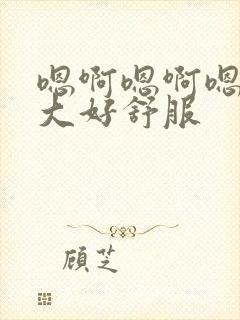 嗯啊嗯啊嗯
大好舒服
顾芝